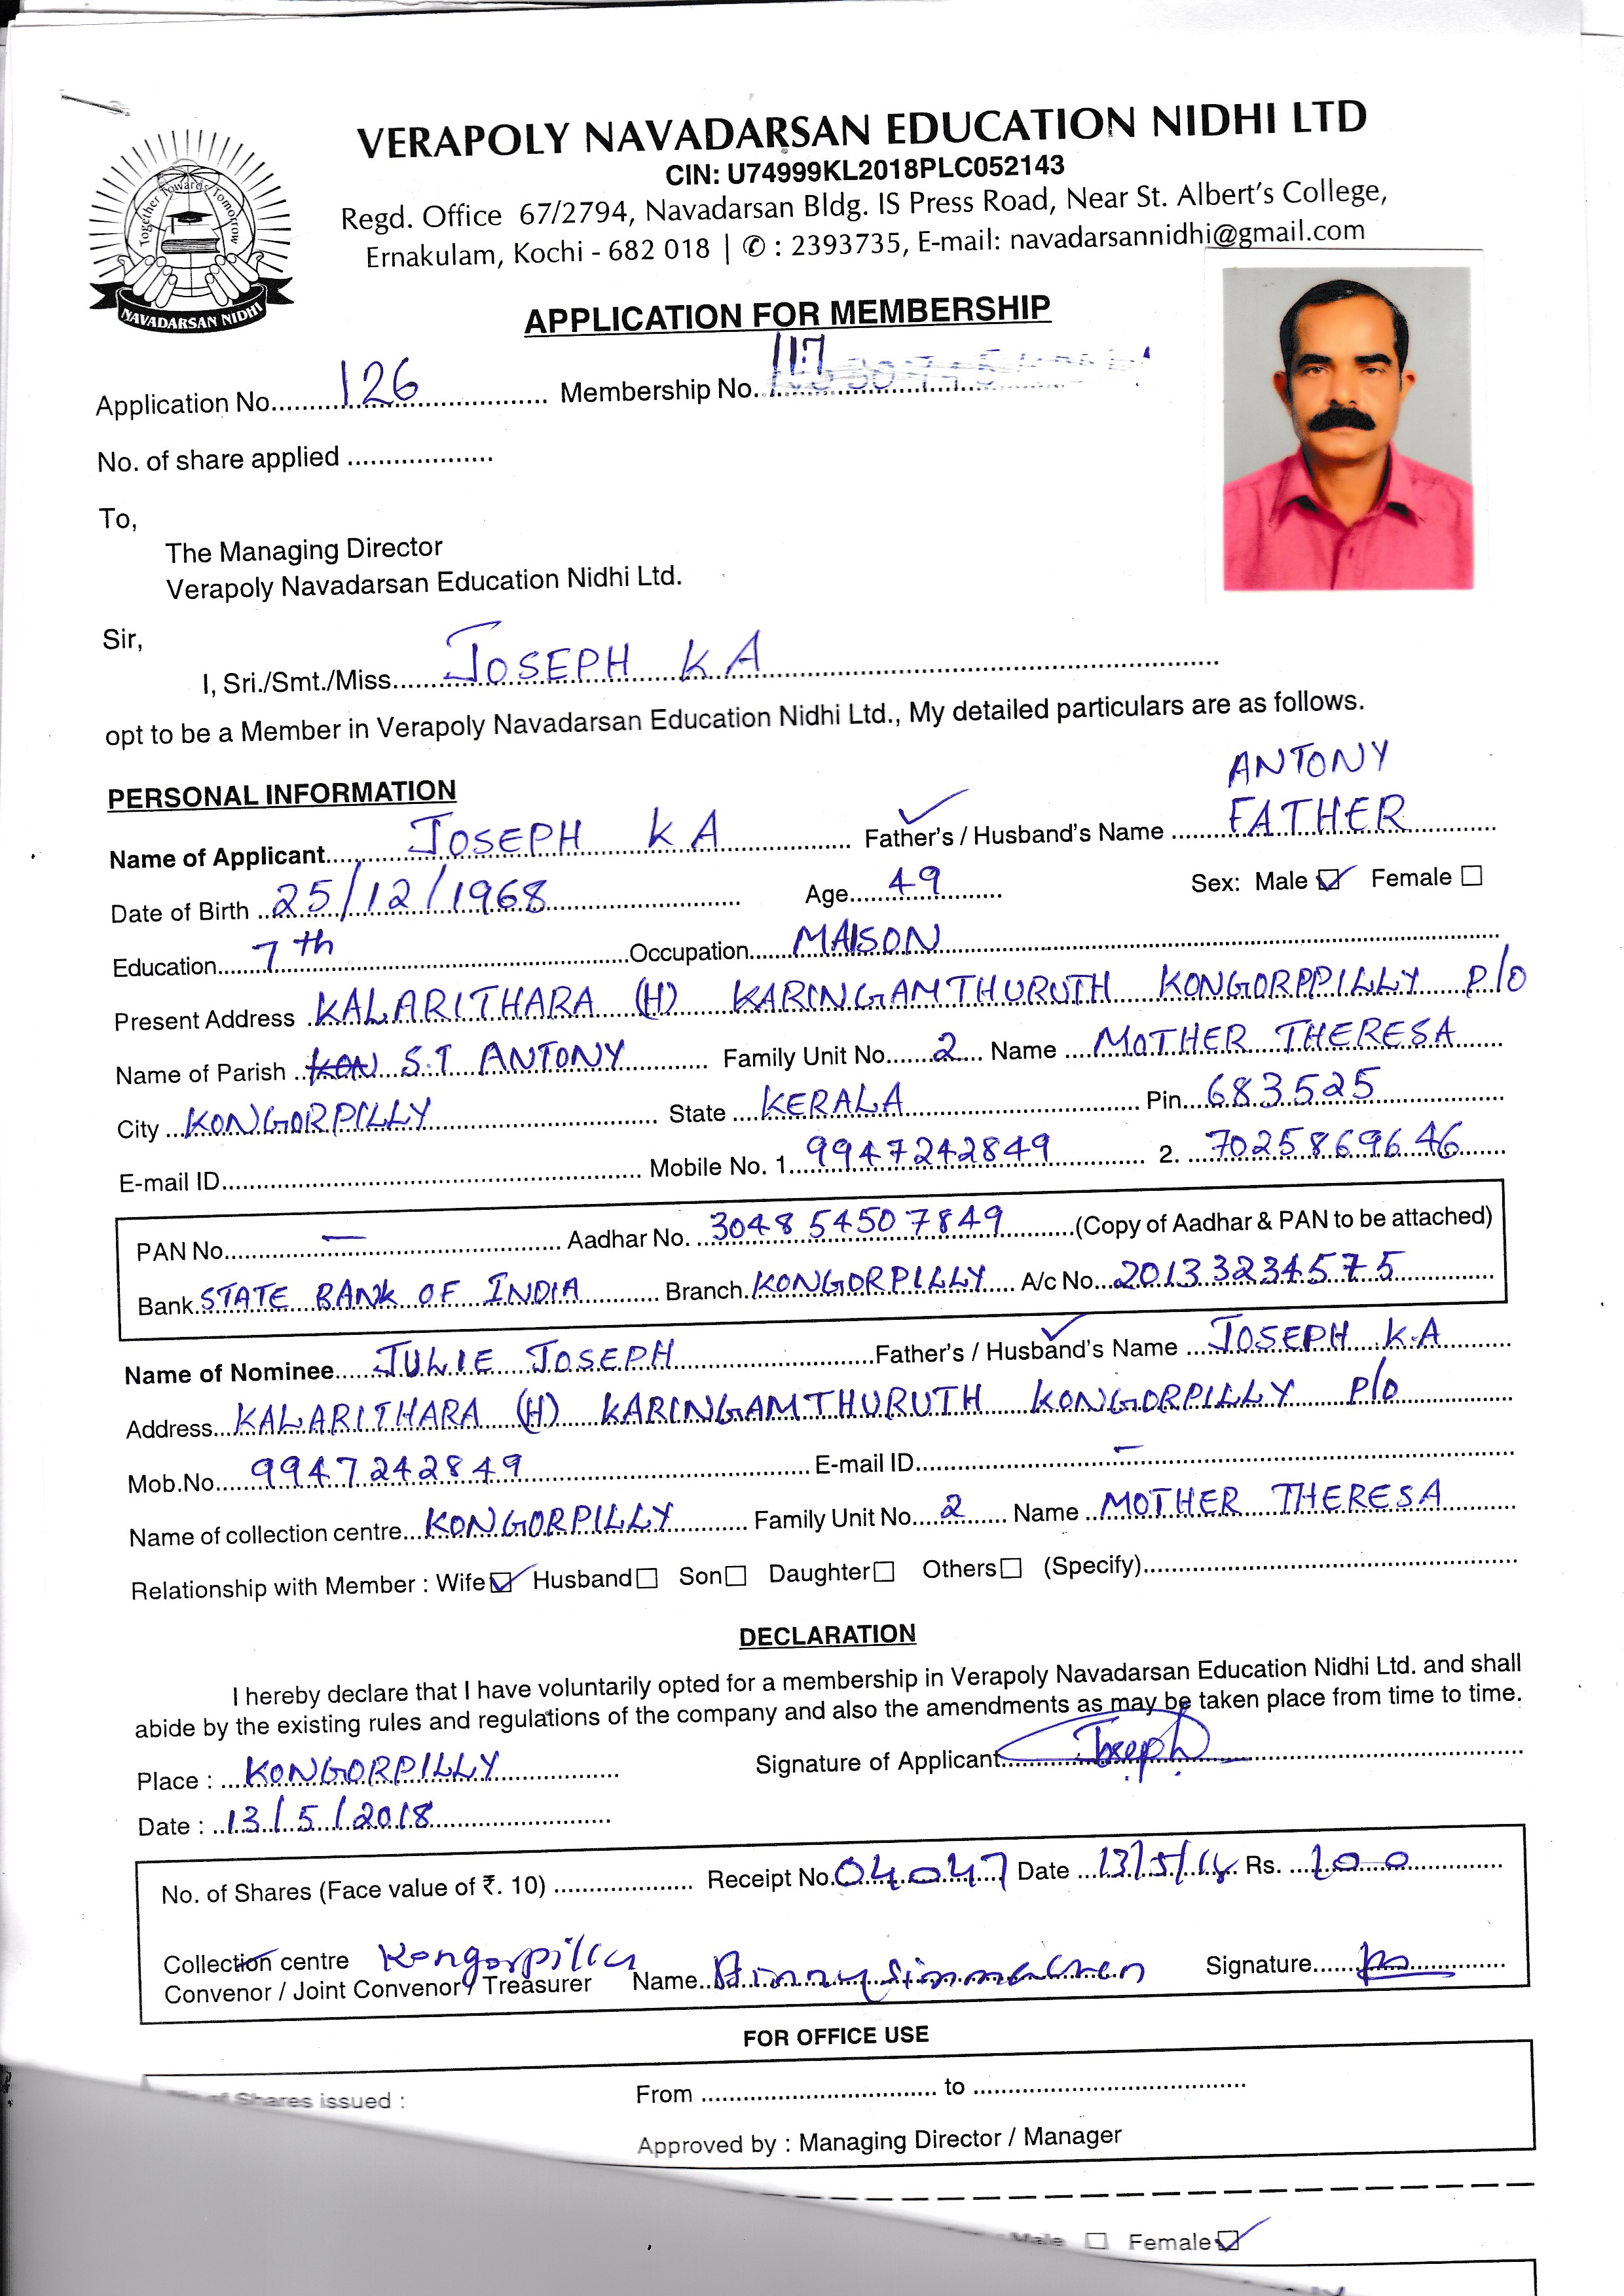 VERAPOLY NAVADARSAN EDUCATION NIDHI LTD
CIN: U74999KL2018PLC052143
Regd. Office 67/2794, Navadarsan Bldg. IS Press Road, Near St. Albert's College,
Ernakulam, Kochi - 682 018 | ✆ : 2393735, E-mail: navadarsannidhi@gmail.com
Together Towards Tomorrow
NAVADARSAN NIDHI
APPLICATION FOR MEMBERSHIP
Application No. 126 Membership No. 117
No. of share applied
To,
The Managing Director
Verapoly Navadarsan Education Nidhi Ltd.
Sir,
I, Sri./Smt./Miss JOSEPH K A
opt to be a Member in Verapoly Navadarsan Education Nidhi Ltd., My detailed particulars are as follows.
PERSONAL INFORMATION
ANTONY
Name of Applicant JOSEPH K A Father's / Husband's Name FATHER
Date of Birth 25/12/1968 Age 49 Sex: Male ☑ Female ☐
Education 7th Occupation MAISON
Present Address KALARITHARA (H) KARINGAMTHURUTH KONGORPPILLY P/O
Name of Parish S.T ANTONY Family Unit No. 2 Name MOTHER THERESA
City KONGORPILLY State KERALA Pin 683525
E-mail ID Mobile No. 1 9947242849 2. 7025869646
PAN No. — Aadhar No. 304854507849 (Copy of Aadhar & PAN to be attached)
Bank STATE BANK OF INDIA Branch KONGORPILLY A/c No. 20133234575
Name of Nominee JULIE JOSEPH Father's / Husband's Name JOSEPH K.A
Address KALARITHARA (H) KARINGAMTHURUTH KONGORPILLY P/O
Mob.No. 9947242849 E-mail ID —
Name of collection centre KONGORPILLY Family Unit No. 2 Name MOTHER THERESA
Relationship with Member : Wife ☑ Husband ☐ Son ☐ Daughter ☐ Others ☐ (Specify)
DECLARATION
I hereby declare that I have voluntarily opted for a membership in Verapoly Navadarsan Education Nidhi Ltd. and shall
abide by the existing rules and regulations of the company and also the amendments as may be taken place from time to time.
Place : KONGORPILLY Signature of Applicant Joseph
Date : 13/5/2018
No. of Shares (Face value of ₹. 10) Receipt No. 04047 Date 13/5/18 Rs. 100
Collection centre Kongorpilly
Convenor / Joint Convenor / Treasurer Name Signature
FOR OFFICE USE
of Shares issued : From to
Approved by : Managing Director / Manager
Male ☐ Female ☑